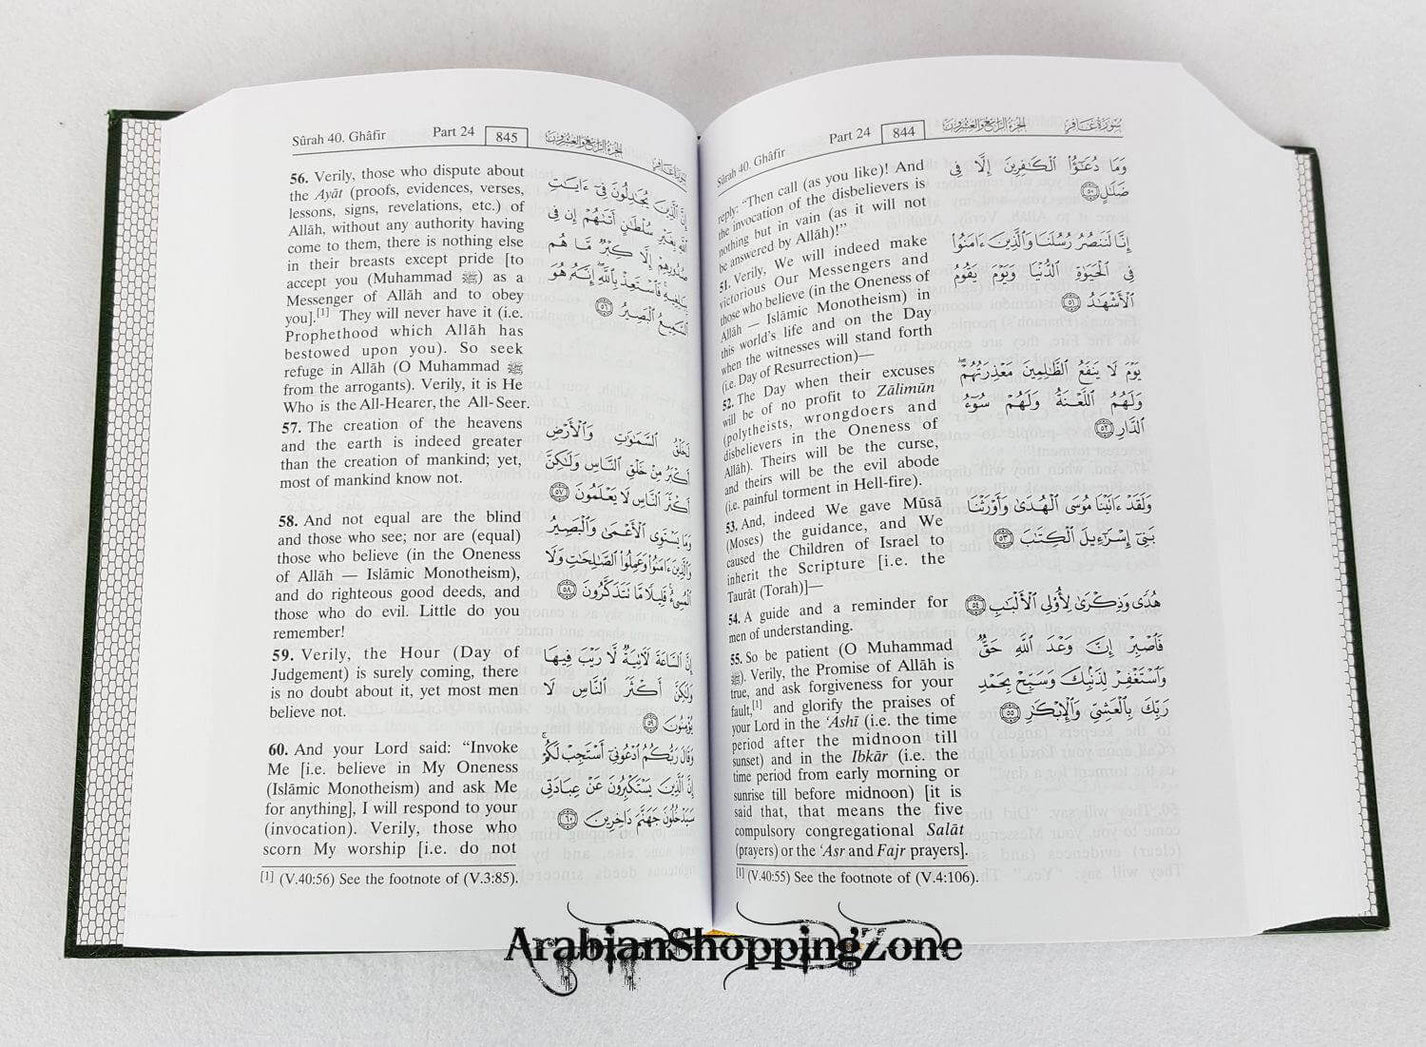 Sûrah 40. Ghâfir
Part 24
844
الجزء الرابع والعشرون
سورة غافر
reply: “Then call (as you like)! And
the invocation of the disbelievers is
nothing but in vain (as it will not
be answered by Allâh)!”
51. Verily, We will indeed make
victorious Our Messengers and
those who believe (in the Oneness of
Allâh — Islâmic Monotheism) in
this world’s life and on the Day
when the witnesses will stand forth
(i.e. Day of Resurrection)—
52. The Day when their excuses
will be of no profit to Zâlimûn
(polytheists, wrongdoers and
disbelievers in the Oneness of
Allâh). Theirs will be the curse,
and theirs will be the evil abode
(i.e. painful torment in Hell-fire).
53. And, indeed We gave Mûsâ
(Moses) the guidance, and We
caused the Children of Israel to
inherit the Scripture [i.e. the
Taurât (Torah)]—
54. A guide and a reminder for
men of understanding.
55. So be patient (O Muhammad
ﷺ). Verily, the Promise of Allâh is
true, and ask forgiveness for your
fault,[1] and glorify the praises of
your Lord in the ‘Ashî (i.e. the time
period after the midnoon till
sunset) and in the Ibkâr (i.e. the
time period from early morning or
sunrise till before midnoon) [it is
said that, that means the five
compulsory congregational Salât
(prayers) or the ‘Asr and Fajr prayers].
وَمَا دُعَٰٓؤُا۟ ٱلْكَٰفِرِينَ إِلَّا فِى
ضَلَٰلٍ ٥٠
إِنَّا لَنَنصُرُ رُسُلَنَا وَٱلَّذِينَ ءَامَنُوا۟
فِى ٱلْحَيَوٰةِ ٱلدُّنْيَا وَيَوْمَ يَقُومُ
ٱلْأَشْهَٰدُ ٥١
يَوْمَ لَا يَنفَعُ ٱلظَّٰلِمِينَ مَعْذِرَتُهُمْ ۖ
وَلَهُمُ ٱللَّعْنَةُ وَلَهُمْ سُوٓءُ
ٱلدَّارِ ٥٢
وَلَقَدْ ءَاتَيْنَا مُوسَى ٱلْهُدَىٰ وَأَوْرَثْنَا
بَنِىٓ إِسْرَٰٓءِيلَ ٱلْكِتَٰبَ ٥٣
هُدًى وَذِكْرَىٰ لِأُو۟لِى ٱلْأَلْبَٰبِ ٥٤
فَٱصْبِرْ إِنَّ وَعْدَ ٱللَّهِ حَقٌّ
وَٱسْتَغْفِرْ لِذَنۢبِكَ وَسَبِّحْ بِحَمْدِ
رَبِّكَ بِٱلْعَشِىِّ وَٱلْإِبْكَٰرِ ٥٥
[1] (V.40:55) See the footnote of (V.4:106).
Sûrah 40. Ghâfir
Part 24
845
الجزء الرابع والعشرون
سورة غافر
56. Verily, those who dispute about
the Ayât (proofs, evidences, verses,
lessons, signs, revelations, etc.) of
Allâh, without any authority having
come to them, there is nothing else
in their breasts except pride [to
accept you (Muhammad ﷺ) as a
Messenger of Allâh and to obey
you].[1] They will never have it (i.e.
Prophethood which Allâh has
bestowed upon you). So seek
refuge in Allâh (O Muhammad ﷺ
from the arrogants). Verily, it is He
Who is the All-Hearer, the All-Seer.
57. The creation of the heavens
and the earth is indeed greater
than the creation of mankind; yet,
most of mankind know not.
58. And not equal are the blind
and those who see; nor are (equal)
those who believe (in the Oneness
of Allâh — Islâmic Monotheism),
and do righteous good deeds, and
those who do evil. Little do you
remember!
59. Verily, the Hour (Day of
Judgement) is surely coming, there
is no doubt about it, yet most men
believe not.
60. And your Lord said: “Invoke
Me [i.e. believe in My Oneness
(Islâmic Monotheism) and ask Me
for anything], I will respond to your
(invocation). Verily, those who
scorn My worship [i.e. do not
إِنَّ ٱلَّذِينَ يُجَٰدِلُونَ فِىٓ ءَايَٰتِ
ٱللَّهِ بِغَيْرِ سُلْطَٰنٍ أَتَىٰهُمْ إِن فِى
صُدُورِهِمْ إِلَّا كِبْرٌ مَّا هُم
بِبَٰلِغِيهِ فَٱسْتَعِذْ بِٱللَّهِ إِنَّهُۥ هُوَ
ٱلسَّمِيعُ ٱلْبَصِيرُ ٥٦
لَخَلْقُ ٱلسَّمَٰوَٰتِ وَٱلْأَرْضِ
أَكْبَرُ مِنْ خَلْقِ ٱلنَّاسِ وَلَٰكِنَّ
أَكْثَرَ ٱلنَّاسِ لَا يَعْلَمُونَ ٥٧
وَمَا يَسْتَوِى ٱلْأَعْمَىٰ وَٱلْبَصِيرُ
وَٱلَّذِينَ ءَامَنُوا۟ وَعَمِلُوا۟ ٱلصَّٰلِحَٰتِ وَلَا
ٱلْمُسِىٓءُ قَلِيلًا مَّا تَتَذَكَّرُونَ ٥٨
إِنَّ ٱلسَّاعَةَ لَءَاتِيَةٌ لَّا رَيْبَ فِيهَا
وَلَٰكِنَّ أَكْثَرَ ٱلنَّاسِ لَا
يُؤْمِنُونَ ٥٩
وَقَالَ رَبُّكُمُ ٱدْعُونِىٓ أَسْتَجِبْ لَكُمْ
إِنَّ ٱلَّذِينَ يَسْتَكْبِرُونَ عَنْ عِبَادَتِى
سَيَدْخُلُونَ جَهَنَّمَ دَاخِرِينَ ٦٠
[1] (V.40:56) See the footnote of (V.3:85).
ArabianShoppingZone